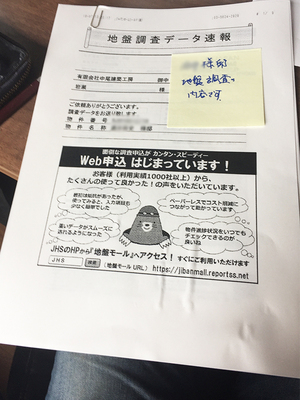 地盤調査データ速報
様邸
地盤調査の
内容です
有限会社中尾建築工房
担当
様
ご依頼ありがとうございます。
調査データをお送り致します
物件番号
物件名
面倒な調査申込が カンタン・スピーディー
Web申込 はじまっています！
お客様（利用実績1000社以上）から、
たくさんの使って良かった！の声をいただいています。
最初は抵抗があったが、
使ってみると、入力項目も
少なく簡単でした
ペーパーレスでコスト削減に
つながって助かっています
重いデータがスムーズに
送れるようになった
物件進捗状況をいつでも
チェックできるのが
良いね
JHSのHPから『地盤モール』へアクセス！ すぐにご利用いただけます
JHS 検索 （地盤モール URL） https://jibanmall.reportss.net